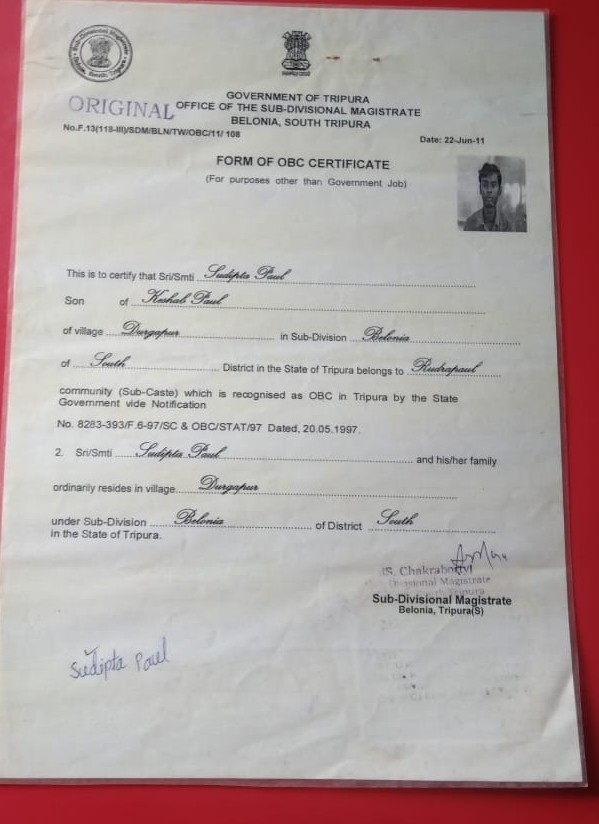 Sub-Divisional Magistrate
South Tripura
ORIGINAL
GOVERNMENT OF TRIPURA
OFFICE OF THE SUB-DIVISIONAL MAGISTRATE
BELONIA, SOUTH TRIPURA
No.F.13(118-III)/SDM/BLN/TW/OBC/11/ 108
Date: 22-Jun-11
FORM OF OBC CERTIFICATE
(For purposes other than Government Job)
This is to certify that Sri/Smti Sudipta Paul
Son of Keshab Paul
of village Durgapur in Sub-Division Belonia
of South District in the State of Tripura belongs to Rudrapaul
community (Sub-Caste) which is recognised as OBC in Tripura by the State
Government vide Notification
No. 8283-393/F.6-97/SC & OBC/STAT/97 Dated, 20.05.1997.
2. Sri/Smti Sudipta Paul and his/her family
ordinarily resides in village Durgapur
under Sub-Division Belonia of District South
in the State of Tripura.
(S. Chakraborty)
Divisional Magistrate
Tripura
Sub-Divisional Magistrate
Belonia, Tripura(S)
Sudipta Paul